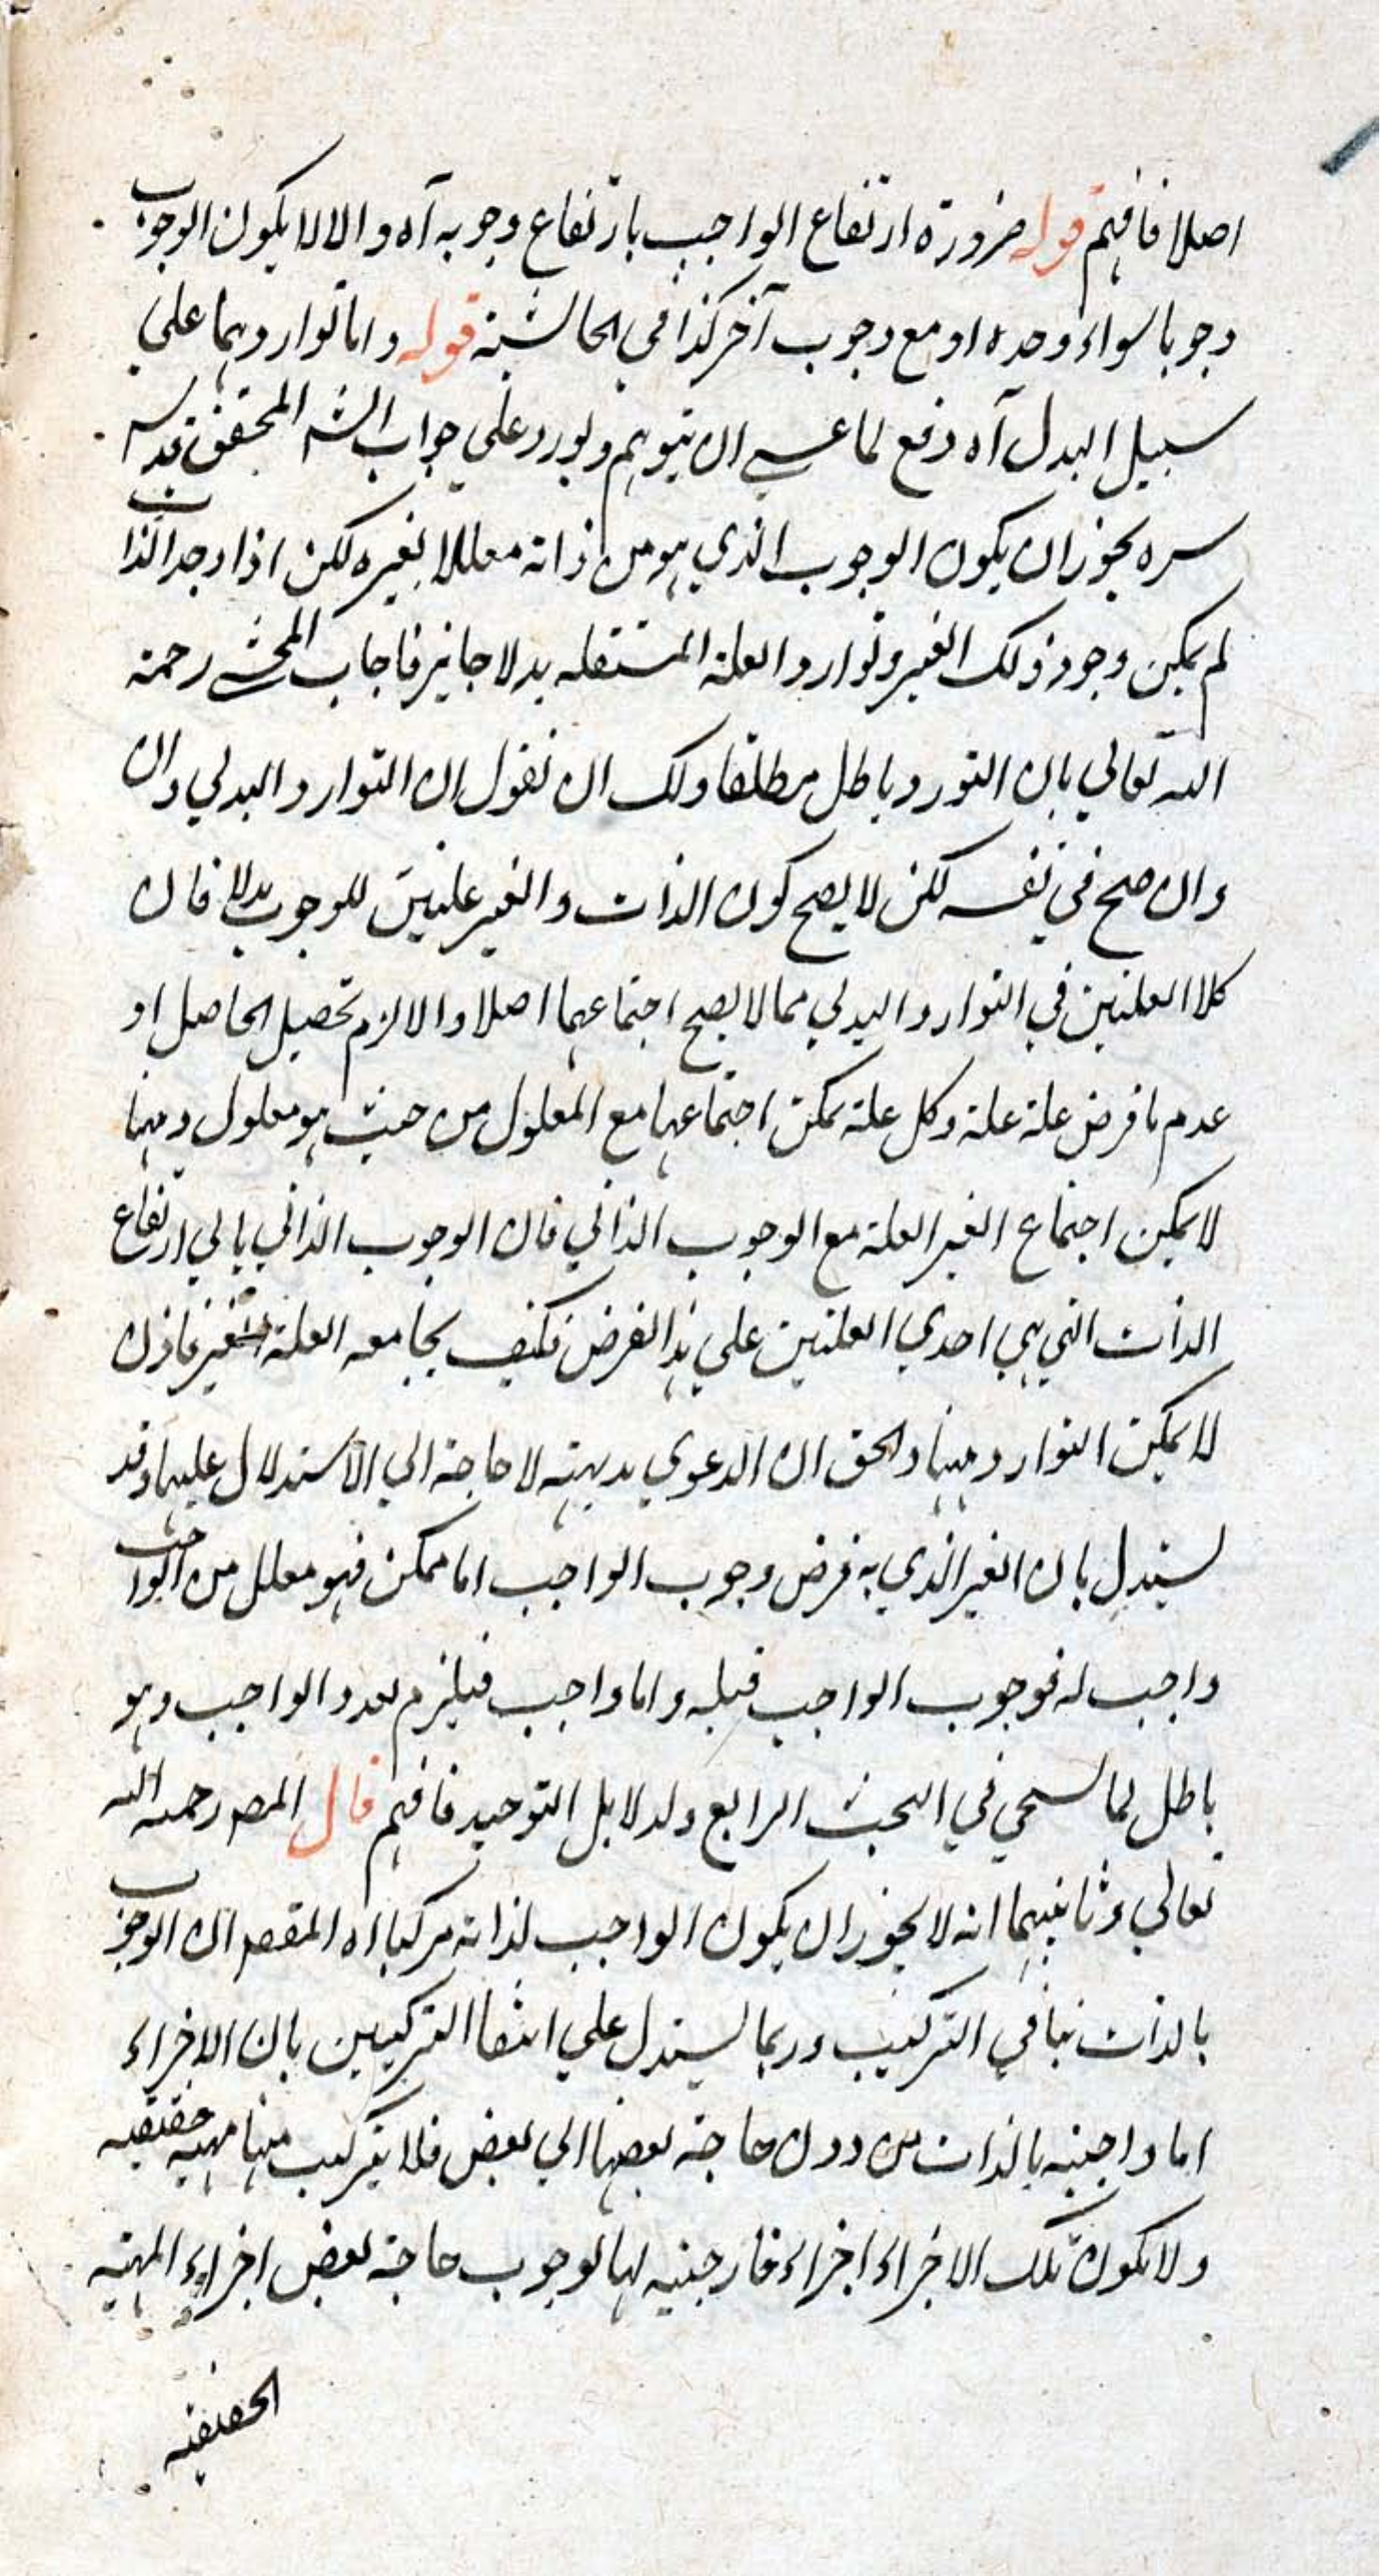 اصلا فافهم قوله ضرورة ارتفاع الواجب بارتفاع وجوبه آه والا لا يكون الوجوب
وجوبا سواء وحده او مع وجوب آخر كذا في الحاشية قوله واما تواردهما علي
سبيل البدل آه دفع لما عسي ان يتوهم ويورد علي جواب الشه المحقق قدس
سره يجوز ان يكون الوجوب الذي هو من ذاته معللا بغيره لكن اذا وجد الذات
لم يمكن وجود ذلك الغير وتوارد العلة المستقله بدلا جايز فاجاب المحشي رحمة
الله تعالي بان التورد باطل مطلقا ولك ان تقول ان التوارد البدلي وان
وان صح في نفسه لكن لا يصح كون الذات والغير علتين للوجوب بدلا فان
كلا العلتين في التوارد البدلي مما لا يصح اجتماعهما اصلا والا لزم تحصيل الحاصل او
عدم ما فرض علة علة وكل علة يمكن اجتماعها مع المعلول من حيث هو معلول وههنا
لا يمكن اجتماع الغير العلة مع الوجوب الذاتي فان الوجوب الذاتي يابي ارتفاع
الذات التي هي احدي العلتين علي هذا الفرض فكيف يجامعه العلة الغير فاذن
لا يمكن التوارد ههنا والحق ان الدعوي بديهية لا حاجة الي الاستدلال عليها وقد
يستدل بان الغير الذي به فرض وجوب الواجب اما ممكن فهو معلل من الواجب
واجب له فوجوب الواجب قبله واما واجب فيلزم تعدد الواجب وهو
باطل لما سيجي في البحث الرابع ولدلايل التوحيد فافهم قال المصه رحمه الله
تعالي وثانيهما انه لا يجوز ان يكون الواجب لذاته مركبا اه المقصه ان الوجوب
بالذات ينافي التركيب وربما يستدل علي انتفا التركيبين بان الاجزاء
اما واجبيه بالذات من دون حاجة بعضها الي بعض فلا يتركب منها مهية حقيقيه
ولا يكون تلك الاجزاء اجزاء خارجنيه لها لوجوب حاجة بعض اجزاء المهية
الحقيقيه